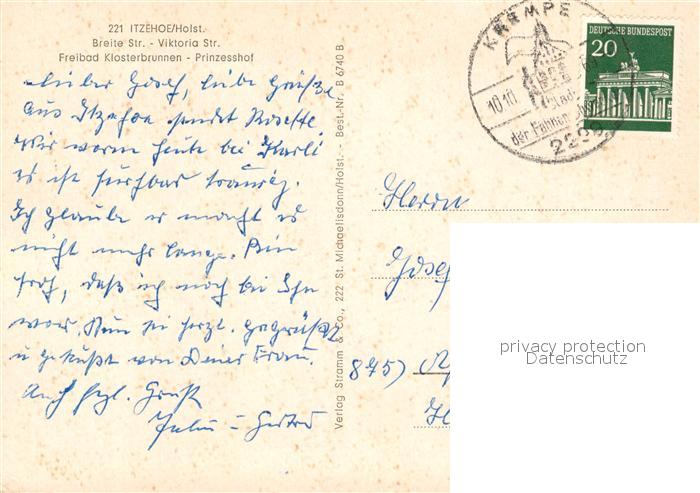 221 ITZEHOE/Holst.
Breite Str. - Viktoria Str.
Freibad Klosterbrunnen - Prinzesshof
Lieber Josef, liebe Grüße
aus Itzehoe sendet Rosette.
Wir waren heute bei Karli
es ist furchbar traurig.
Ich glaube er macht es
nicht mehr lange. Bin
froh, daß ich noch bei Ihn
war. Nun sei herzl. gegrüßt
u geküßt von Deiner Frau.
Auch hrzl. Gruß
Verlag Stramm & Co., 222 St. Michaelisdonn/Holst. - Best.-Nr. B 6740 B
KREMPE
10.10
der
2209
DEUTSCHE BUNDESPOST
20
Herrn
Josef
8757
privacy protection
Datenschutz